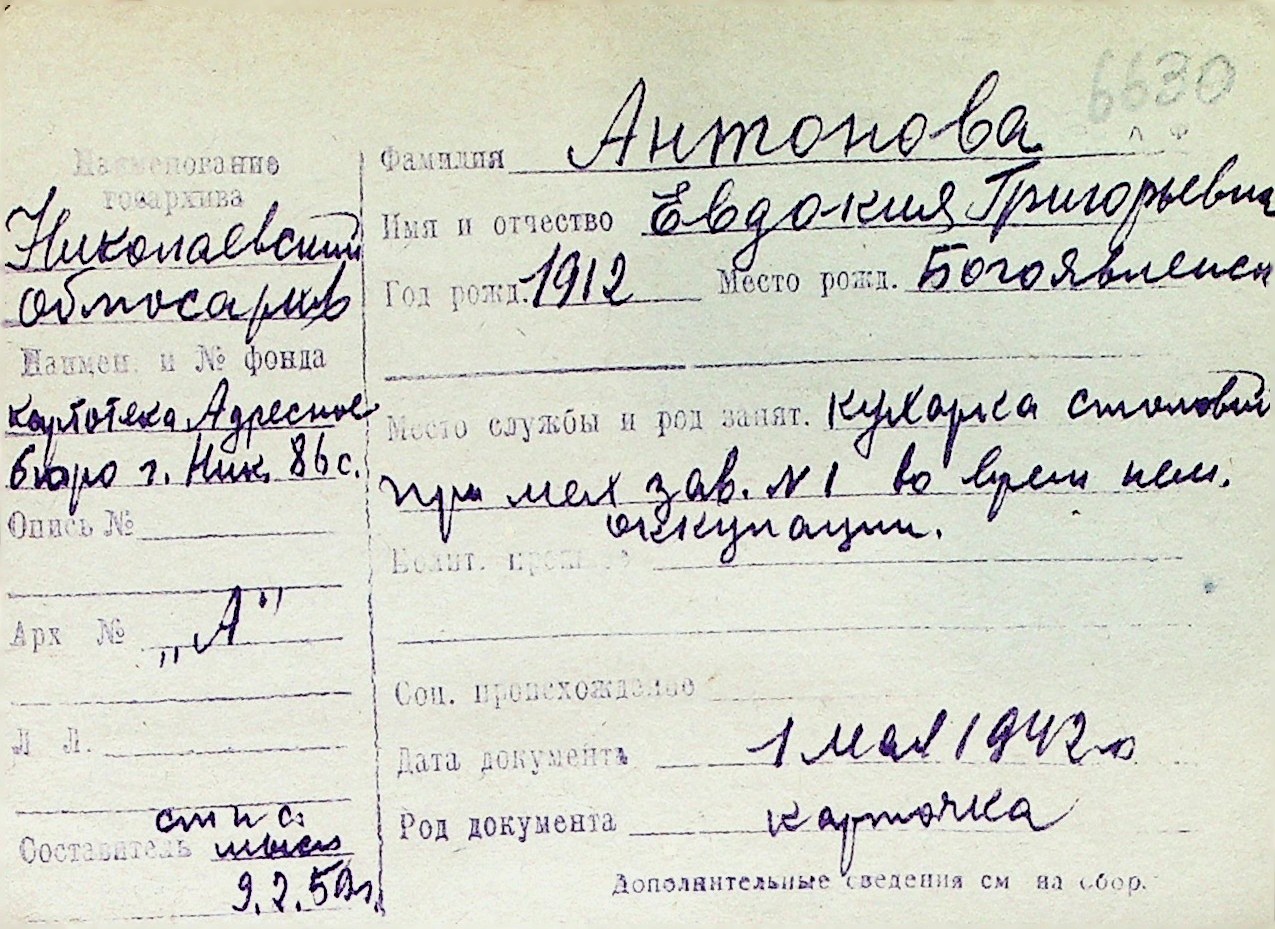 6630
Наименование
госархива
Николаевский
облгосархив
Наимен. и № фонда
картотека Адресное
бюро г. Ник. 86 с.
Опись №
Арх № „А"
Л Л.
Составитель
9.2.50 г.
Фамилия Антонова
Имя и отчество Евдокия Григорьевна
Год рожд. 1912 Место рожд. Богоявленск
Место службы и род занят. кухарка столовой
при мех зав. №1 во врем нем.
оккупации.
Полит. прошлое
Соц. происхождение
Дата документа 1 мая 1942 г
Род документа карточка
Дополнительные сведения см на обор.